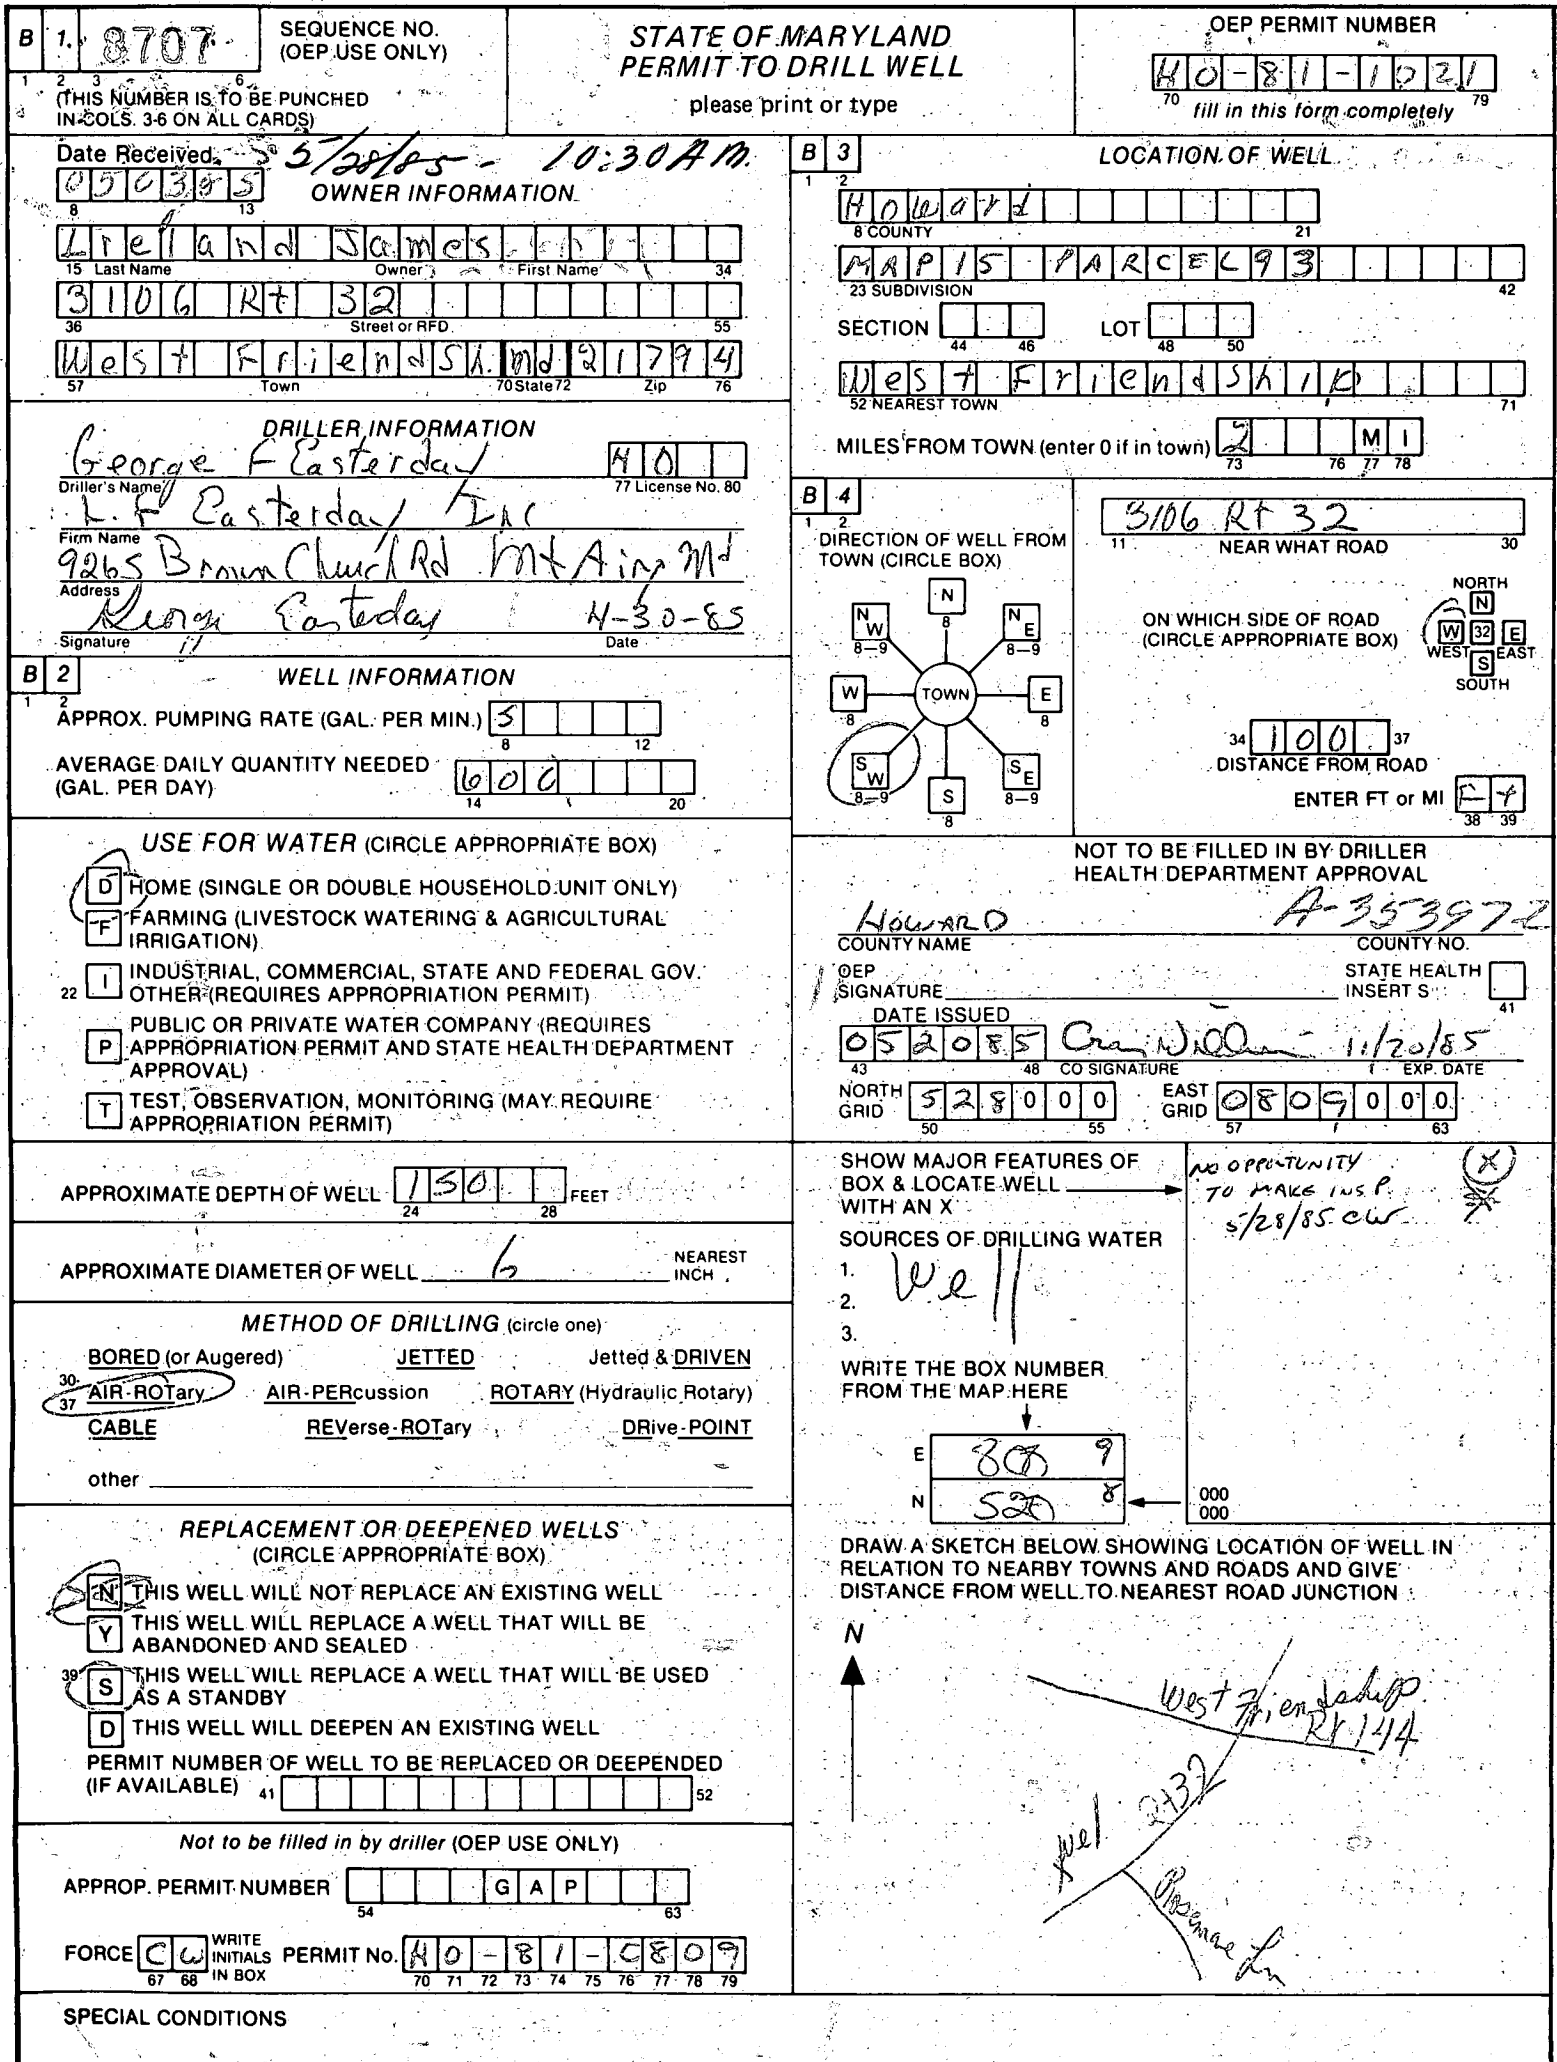 B 1. 8707 SEQUENCE NO. (OEP USE ONLY)
1 2 3 6
(THIS NUMBER IS TO BE PUNCHED
IN COLS. 3-6 ON ALL CARDS)
STATE OF MARYLAND
PERMIT TO DRILL WELL
please print or type
OEP PERMIT NUMBER
HO-81-1021
70 79
fill in this form completely
Date Received 5/28/85 - 10:30 AM.
050385
8 13
OWNER INFORMATION
Ireland James
15 Last Name Owner First Name 34
3106 Rt 32
36 Street or RFD 55
West FriendSh. Md 21794
57 Town 70 State 72 Zip 76
DRILLER INFORMATION
George F Easterday HO
Driller's Name 77 License No. 80
L.F Easterday Inc
Firm Name
9265 Brown Church Rd Mt Airy Md
Address
George Easterday 4-30-85
Signature Date
B 2 WELL INFORMATION
1 2
APPROX. PUMPING RATE (GAL. PER MIN.) 5
8 12
AVERAGE DAILY QUANTITY NEEDED
(GAL. PER DAY) 600
14 20
USE FOR WATER (CIRCLE APPROPRIATE BOX)
D HOME (SINGLE OR DOUBLE HOUSEHOLD UNIT ONLY)
F FARMING (LIVESTOCK WATERING & AGRICULTURAL
IRRIGATION)
22 I INDUSTRIAL, COMMERCIAL, STATE AND FEDERAL GOV.
OTHER (REQUIRES APPROPRIATION PERMIT)
P PUBLIC OR PRIVATE WATER COMPANY (REQUIRES
APPROPRIATION PERMIT AND STATE HEALTH DEPARTMENT
APPROVAL)
T TEST, OBSERVATION, MONITORING (MAY REQUIRE
APPROPRIATION PERMIT)
APPROXIMATE DEPTH OF WELL 150 FEET
24 28
APPROXIMATE DIAMETER OF WELL 6 NEAREST INCH
METHOD OF DRILLING (circle one)
BORED (or Augered) JETTED Jetted & DRIVEN
30 37 AIR-ROTary AIR-PERcussion ROTARY (Hydraulic Rotary)
CABLE REVerse-ROTary DRive-POINT
other
REPLACEMENT OR DEEPENED WELLS
(CIRCLE APPROPRIATE BOX)
N THIS WELL WILL NOT REPLACE AN EXISTING WELL
Y THIS WELL WILL REPLACE A WELL THAT WILL BE
ABANDONED AND SEALED
39 S THIS WELL WILL REPLACE A WELL THAT WILL BE USED
AS A STANDBY
D THIS WELL WILL DEEPEN AN EXISTING WELL
PERMIT NUMBER OF WELL TO BE REPLACED OR DEEPENDED
(IF AVAILABLE) 41 52
Not to be filled in by driller (OEP USE ONLY)
APPROP. PERMIT NUMBER GAP
54 63
FORCE CW WRITE INITIALS IN BOX PERMIT No. HO-81-C809
67 68 70 71 72 73 74 75 76 77 78 79
SPECIAL CONDITIONS
B 3 LOCATION OF WELL
1 2
Howard
8 COUNTY 21
MAP 15 PARCEL 93
23 SUBDIVISION 42
SECTION LOT
44 46 48 50
West Friendship
52 NEAREST TOWN 71
MILES FROM TOWN (enter 0 if in town) 2 MI
73 76 77 78
B 4
1 2
DIRECTION OF WELL FROM
TOWN (CIRCLE BOX)
N
8
NW NE
8-9 8-9
W TOWN E
8 8
SW SE
8-9 8-9
S
8
3106 Rt 32
11 NEAR WHAT ROAD 30
ON WHICH SIDE OF ROAD
(CIRCLE APPROPRIATE BOX)
NORTH
N
W 32 E
WEST EAST
S
SOUTH
34 100 37
DISTANCE FROM ROAD
ENTER FT or MI Ft
38 39
NOT TO BE FILLED IN BY DRILLER
HEALTH DEPARTMENT APPROVAL
HOWARD A-353972
COUNTY NAME COUNTY NO.
OEP
SIGNATURE
STATE HEALTH
INSERT S
41
DATE ISSUED
052085 11/20/85
43 48 CO SIGNATURE EXP. DATE
NORTH GRID 528000 EAST GRID 0809000
50 55 57 63
SHOW MAJOR FEATURES OF
BOX & LOCATE WELL
WITH AN X
NO OPPORTUNITY
TO MAKE INSP.
5/28/85 CW
X
SOURCES OF DRILLING WATER
1. Well
2.
3.
WRITE THE BOX NUMBER
FROM THE MAP HERE
E 808 9
N 520 8
000
000
DRAW A SKETCH BELOW SHOWING LOCATION OF WELL IN
RELATION TO NEARBY TOWNS AND ROADS AND GIVE
DISTANCE FROM WELL TO NEAREST ROAD JUNCTION
N
West Friendship
Rt 144
Rt 32
wel